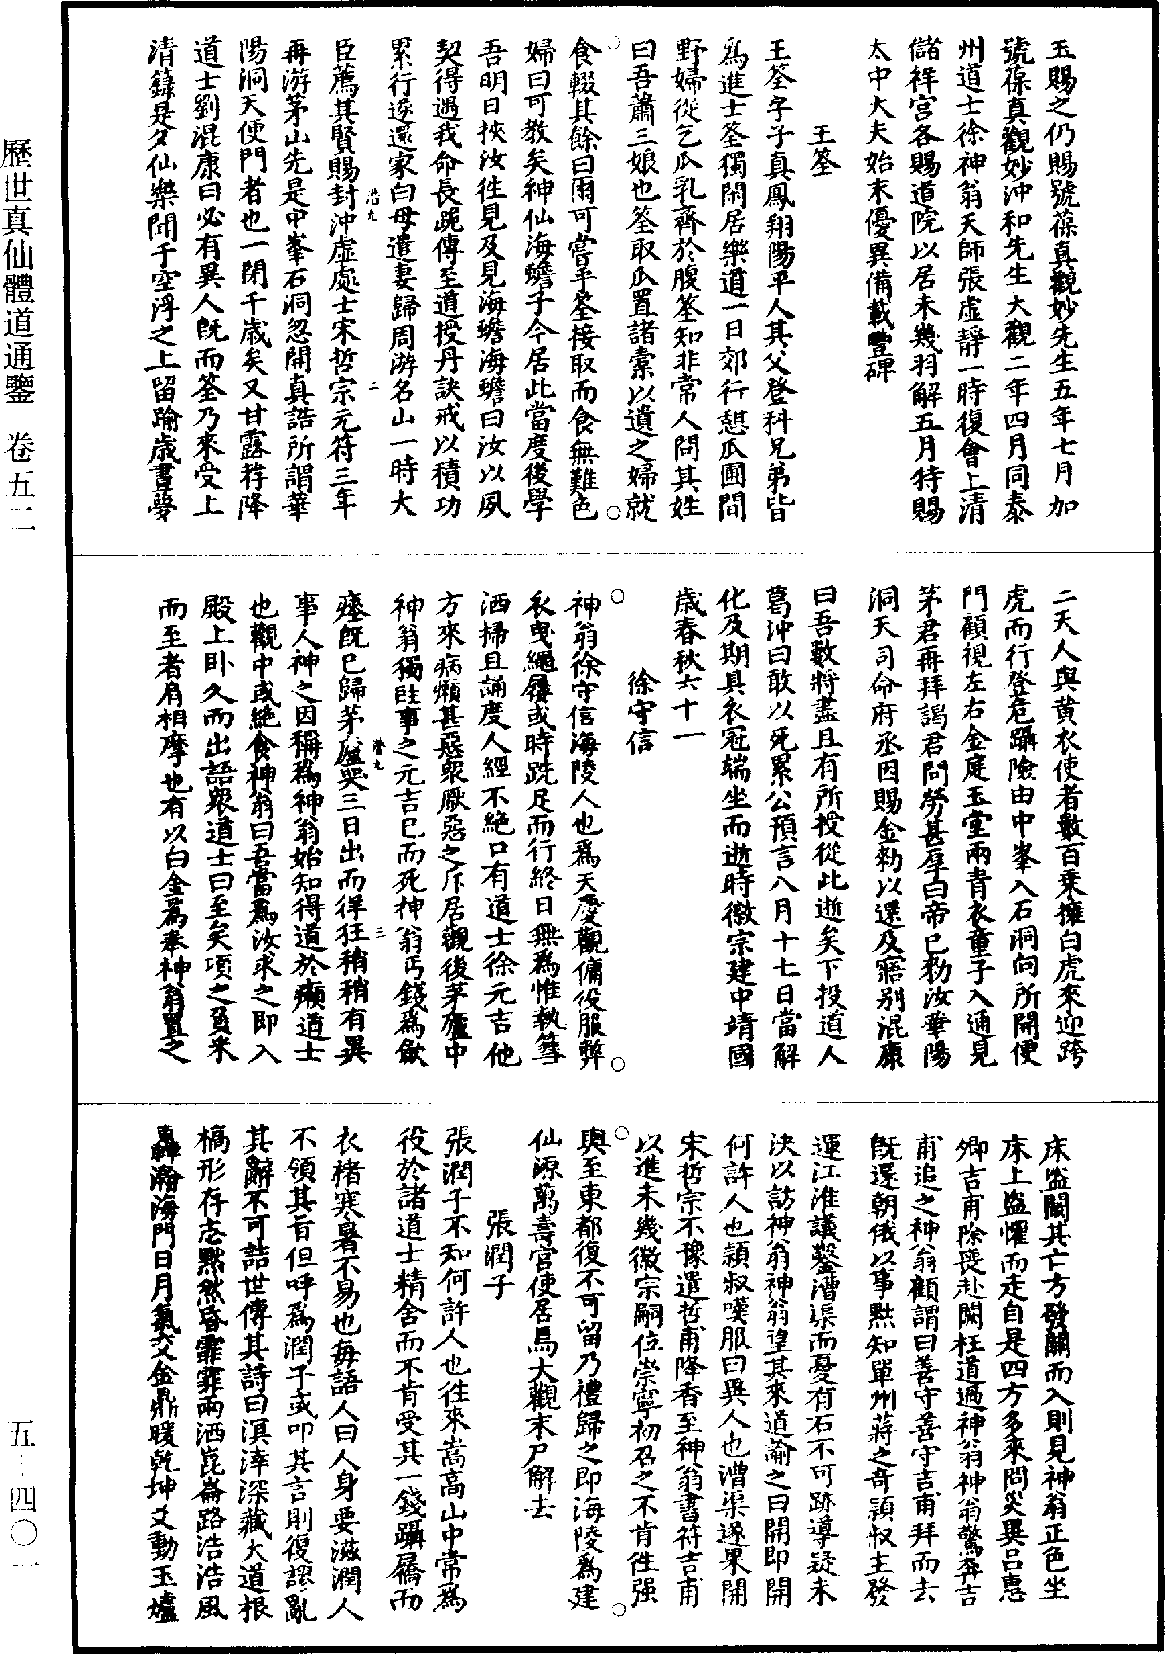 歷世真仙體道通鑒　卷五二
五—四〇一
玉賜之仍賜號葆真觀妙先生五年七月加
號葆真觀妙沖和先生大觀二年四月同泰
州道士徐神翁天師張虛靜一時復會上清
儲祥宮各賜道院以居未幾羽解五月特賜
太中大夫始末優異備載豐碑
王筌
王筌字子真鳳翔陽平人其父登科兄弟皆
為進士筌獨閑居樂道一日郊行憩瓜圃間
野婦從乞瓜乳齊於腹筌知非常人問其姓
曰吾蕭三娘也筌取瓜置諸橐以遺之婦就
食輟其餘曰爾可嘗乎筌接取而食無難色
婦曰可教矣神仙海蟾子今居此當度後學
吾明日挾汝往見及見海蟾海蟾曰汝以夙
契得遇我命長跪傳至道授丹訣戒以積功
累行遂還家白母遣妻歸周游名山一時大
臣薦其賢賜封沖虛處士宋哲宗元符三年
再游茅山先是中峯石洞忽開真誥所謂華
陽洞天便門者也一閉千歲矣又甘露荐降
道士劉混康曰必有異人既而筌乃來受上
清籙是夕仙樂聞于空浮之上留踰歲晝夢
二天人與黃衣使者數百乘擁白虎來迎跨
虎而行登危躡險由中峯入石洞向所開便
門顧視左右金庭玉堂兩青衣童子入通見
茅君再拜謁君問勞甚厚白帝已勑汝華陽
洞天司命府丞因賜金勑以還及寤別混康
曰吾數將盡且有所授從此逝矣下投道人
葛沖曰敢以死累公預言八月十七日當解
化及期具衣冠端坐而逝時徽宗建中靖國
歲春秋六十一
徐守信
神翁徐守信海陵人也為天慶觀傭役服弊
衣曳繩屨或時跣足而行終日無為惟執篲
洒掃且誦度人經不絕口有道士徐元吉他
方來病癩甚惡眾厭惡之斥居觀後茅廬中
神翁獨事之元吉已而死神翁丐錢為斂
瘞既已歸茅廬哭三日出而徉狂稍稍有異
事人神之因稱為神翁始知得道於癩道士
也觀中或絕食神翁曰吾當為汝求之即入
殿上卧久而出語眾道士曰至矣項之負米
而至者肩相摩也有以白金為奉神翁置之
床盜闞其亡方發關而入則見神翁正色坐
床上盜懼而走自是四方多來問災異呂惠
卿吉甫除喪赴闕枉道過神翁神翁驚奔吉
甫追之神翁顧謂曰善守善守吉甫拜而去
既還朝俄以事黜知單州蔣之奇穎叔主發
運江淮議鑿漕渠而憂有石不可跡導疑未
決以訪神翁神翁望其來道諭之曰開即開
何許人也穎叔嘆服曰異人也漕渠遂果開
宋哲宗不豫遣哲甫降香至神翁書符吉甫
以進未幾徽宗嗣位崇寧初召之不肯往強
輿至東都復不可留乃禮歸之即海陵為建
仙源萬壽宮使居焉大觀末尸解去
張潤子
張潤子不知何許人也往來嵩高山中常為
役於諸道士精舍而不肯受其一錢躡屩而
衣褚寒暑不易也每語人曰人身要滋潤人
不領其旨但呼為潤子或叩其言則復認亂
其辭不可詰世傳其詩曰溟涬深藏大道根
槁形存志默然昏霏霏雨洒崑崙路浩浩風
轟瀚海門日月氣交金鼎暖乾坤爻動玉爐